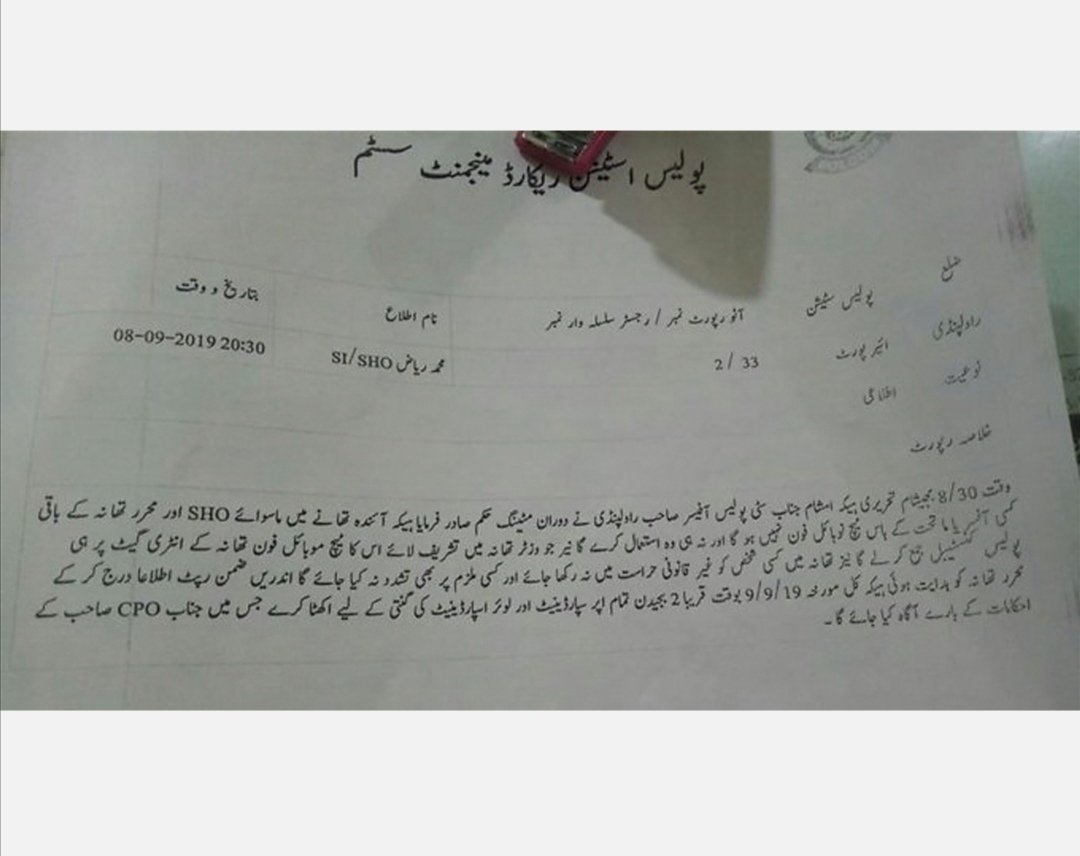 پولیس اسٹیشن ریکارڈ مینجمنٹ سسٹم
ضلع پولیس سٹیشن آٹو رپورٹ نمبر / رجسٹر سلسلہ وار نمبر نام اطلاع بتاریخ و وقت
راولپنڈی ائیر پورٹ 33 /2 محمد ریاض SI/SHO 08-09-2019 20:30
نوعیت اطلاعی
خلاصہ رپورٹ
وقت 8/30 بجیشام تحریری ہیکہ امشام جناب سٹی پولیس آفیسر صاحب راولپنڈی نے دوران مٹنگ حکم صادر فرمایا ہیکہ آئندہ تھانے میں ماسوائے SHO اور محرر تھانہ کے باقی
کسی آفسر یا ماتحت کے پاس ٹچ موبائل فون نہیں ہو گا اور نہ ہی وہ استعمال کرے گا نیز جو وزٹر تھانہ میں تشریف لائے اس کا ٹچ موبائل فون تھانہ کے انٹری گیٹ پر ہی
پولیس کنسٹیبل جمع کرلے گا نیز تھانہ میں کسی شخص کو غیر قانونی حراست میں نہ رکھا جائے اور کسی ملزم پر بھی تشدد نہ کیا جائے گا اندریں ضمن رپٹ اطلاعا درج کر کے
محرر تھانہ کو ہدایت ہوئی ہیکہ کل مورخہ 9/9/19 بوقت قریبا 2 بجیدن تمام اپر سپارڈینیٹ اور لوئر اسپارڈینیٹ کی گنتی کے لیے اکھٹا کرے جس میں جناب CPO صاحب کے
احکامات کے بارے آگاہ کیا جائے گا۔